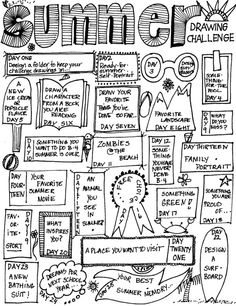 Summer
DRAWING
CHALLENGE
DAY ONE
Design a folder to keep your
challenge drawings in
DAY 2
Ready-for-
summer-
Self-Portrait
DAY
3
SOME-
THING
FOR-
THE
POOL
DAY 4
NEW
ICE
CREAM
OR
POPSICLE
FLAVOR
DAY 5
DRAW A
CHARACTER
FROM A BOOK
YOU ARE
READING
DAY SIX
DRAW YOUR
FAVORITE
THING YOU'VE
DONE SO FAR
DAY SEVEN
FAVORITE
LANDSCAPE
DAY EIGHT
WHAT
DO YOU
MISS?
DAY 9
SOMETHING YOU
WANT TO DO B4
SUMMER IS OVER
ZOMBIES
ON THE
BEACH
DAY
11
DAY 12
SOME
THING
YOU'VE
NEVER
DONE
B4
DAY THIRTEEN
FAMILY
PORTRAIT
DAY
FOUR-
TEEN
YOUR
FAVORITE
SUMMER
MOVIE
AN
ANIMAL
YOU
SEE
IN
SUMMER
SOMETHING
GREEN!
DAY 17
SOMETHING
YOU ARE
PROUD
OF...
DAY 18
FAV-
OR-
ITE
SPORT
DAY
19
WHAT
INSPIRES
YOU?
DAY 20
A PLACE YOU WANT TO VISIT
DAY
TWENTY
ONE
DAY
22
DESIGN
A
SURF-
BOARD
DAY 23
A NEW
BATHING
SUIT
DREAMS FOR
NEXT SCHOOL
YEAR
YOUR BEST
SUMMER MEMORY...